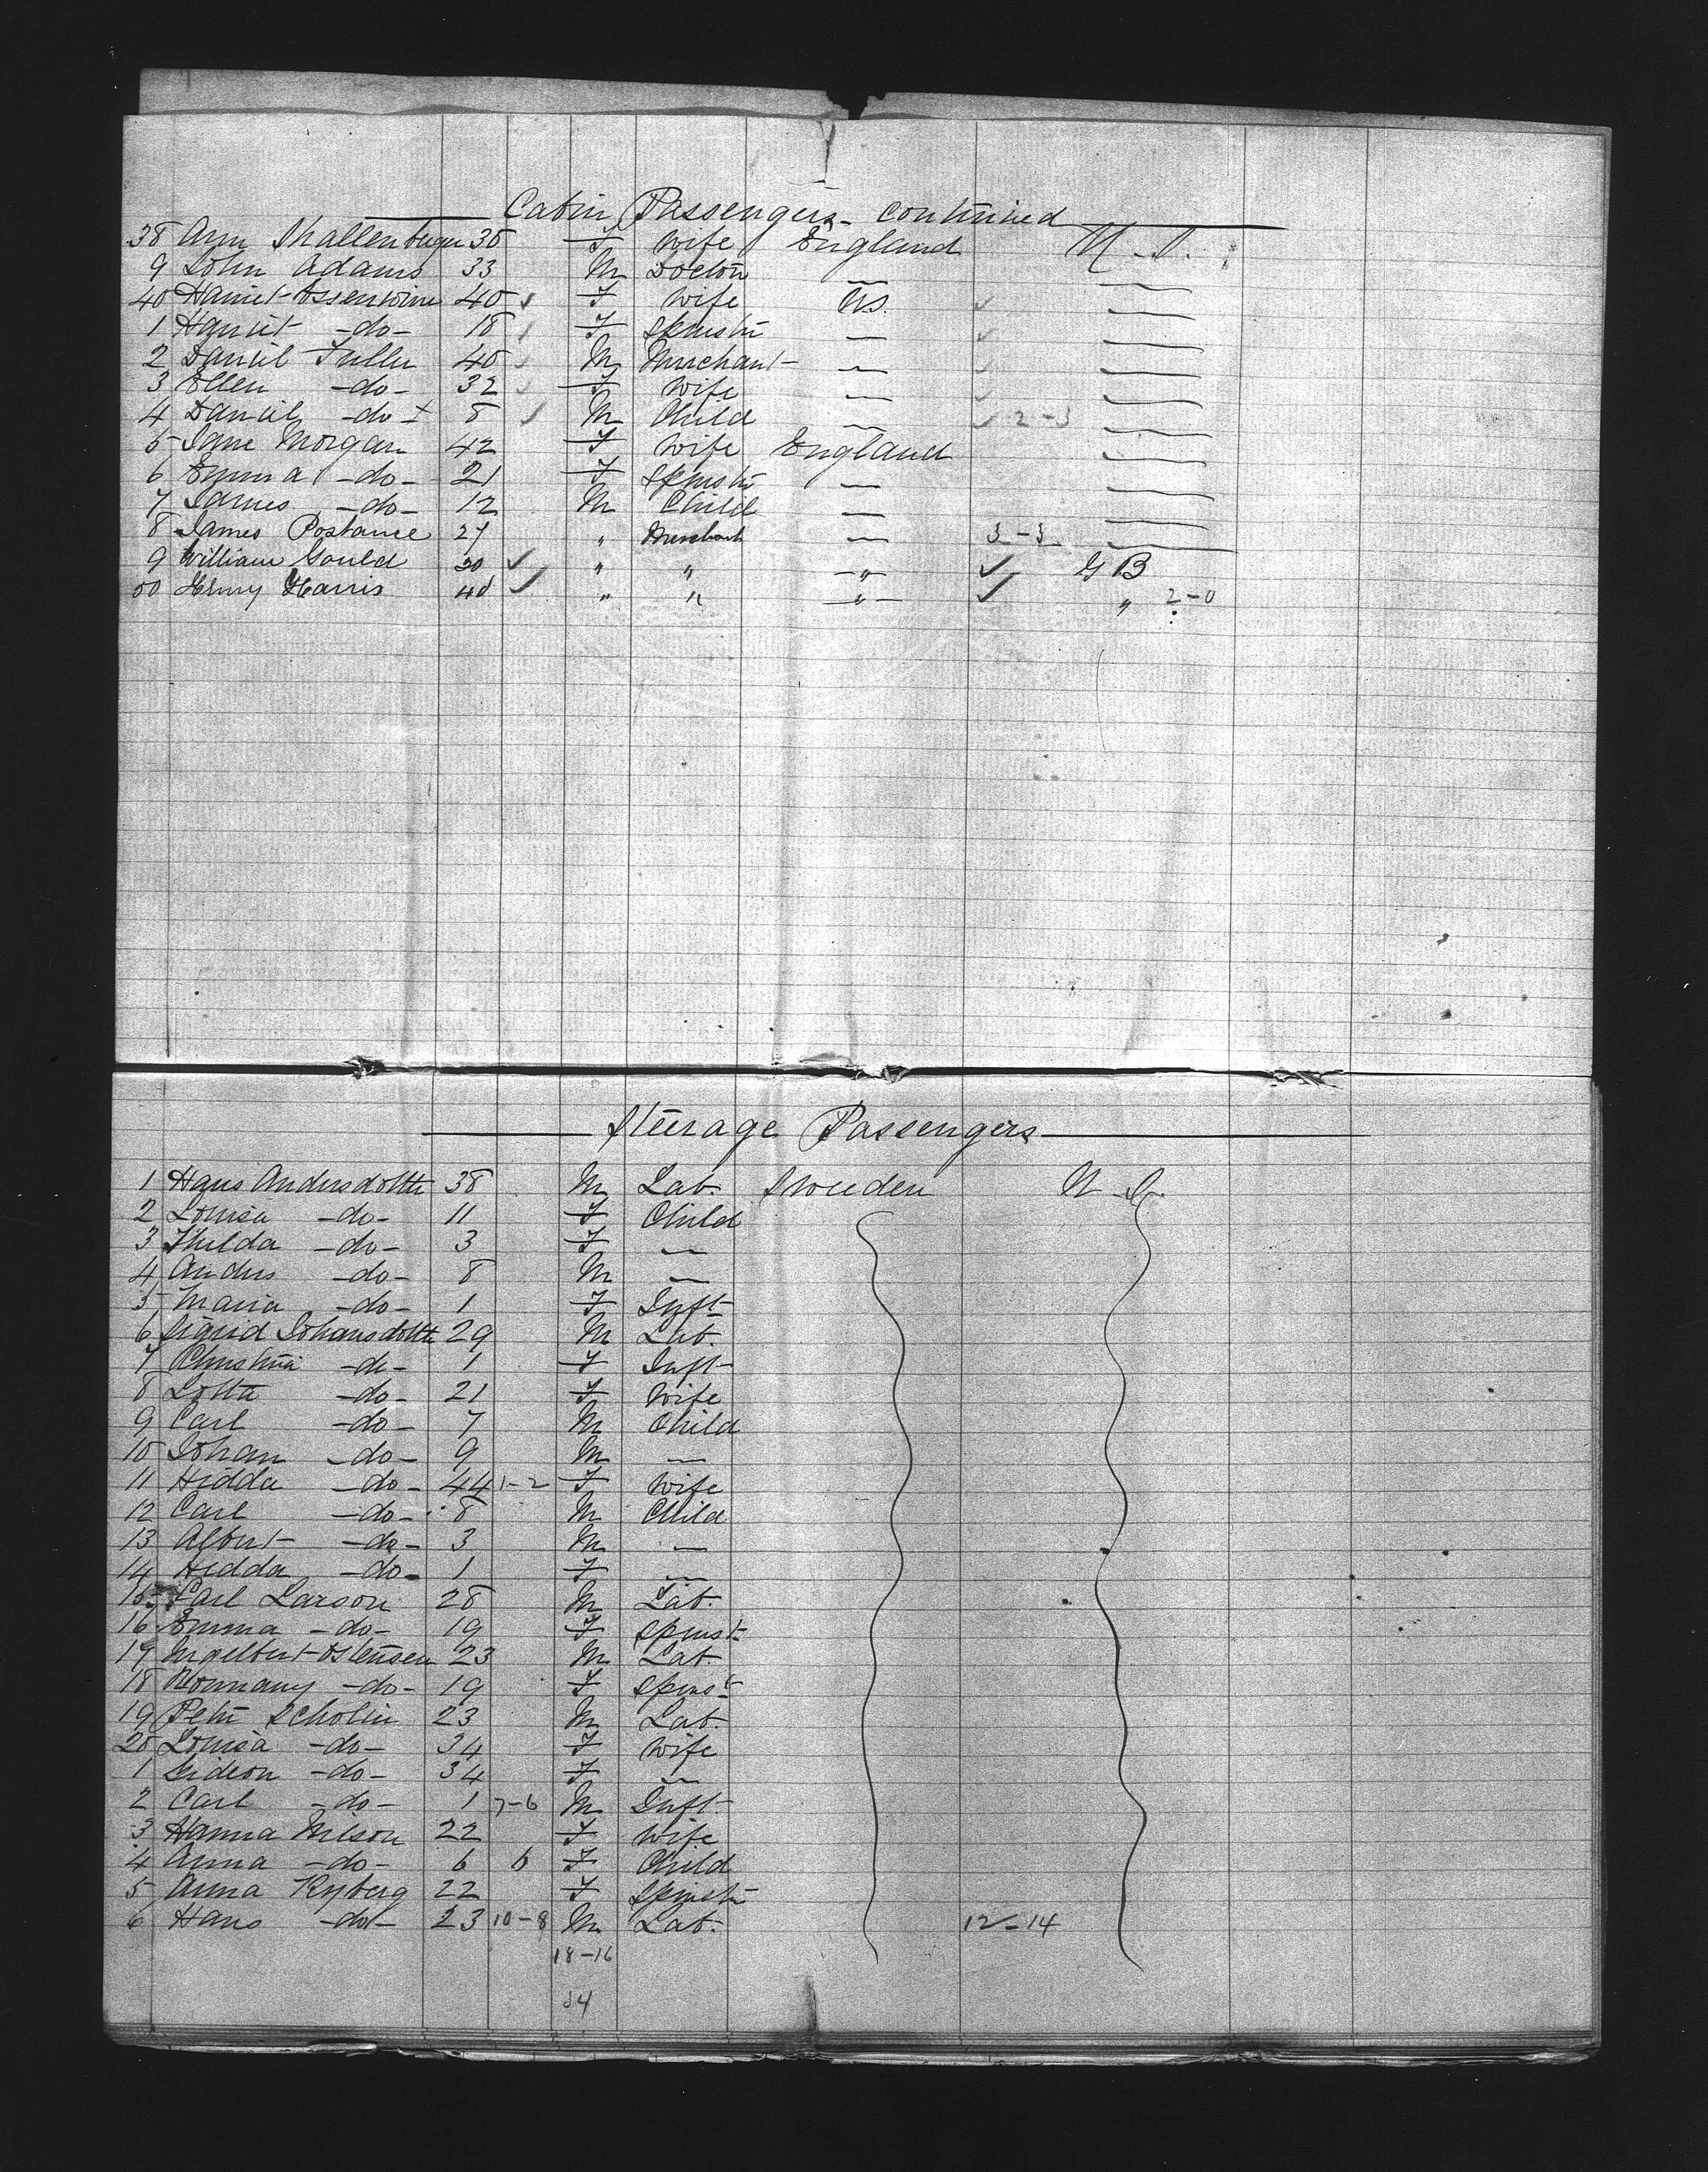 Cabin Passengers continued
38 Ann Shallenberger 30 F Wife England U.S.
9 John Adams 33 M Doctor —
40 Harriet 40 ✓ F Wife U.S. ✓ —
1 Harriet -do- 18 ✓ F Spinstr — ✓ —
2 Daniel Fuller 40 ✓ M Merchant — ✓ —
3 Ellen -do- 32 ✓ F Wife — ✓ —
4 Daniel -do- 8 ✓ M Child — ✓ 2-3 —
5 Jane Morgan 42 F Wife England —
6 Emma -do- 21 F Spinstr — —
7 James -do- 12 M Child — —
8 James Postance 27 " Merchant — 3-3 —
9 William Gould 30 ✓ " " -"- ✓ G B
50 Henry Harris 40 ✓ " " -"- ✓ " 2-0
Steerage Passengers
1 Hans Andersdotter 38 M Lab. Sweden U.S.
2 Louisa -do- 11 F Child
3 Thilda -do- 3 F —
4 Anders -do- 8 M —
5 Maria -do- 1 F Inft
6 Sigrid Johansdotter 29 M Lab.
7 Christina -do- 1 F Inft
8 Lotta -do- 21 F Wife
9 Carl -do- 7 M Child
10 Johan -do- 9 M —
11 Hedda -do- 44 1-2 F Wife
12 Carl -do- 8 M Child
13 Albert -do- 3 M —
14 Hedda -do- 1 F —
15 Carl Larson 28 M Lab.
16 Emma -do- 19 F Spinst
17 Ingelbert Ostensen 23 M Lab.
18 -do- 19 F Spinst
19 Petr Scholin 23 M Lab.
20 Louisa -do- 34 F Wife
1 Gideon -do- 34 F —
2 Carl -do- 1 7-6 M Inft.
3 Hanna Nilson 22 F Wife
4 Anna -do- 6 6 F Child
5 Anna Ryberg 22 F Spinstr
6 Hans -do- 23 10-8 M Lab. 12-14
18-16
34